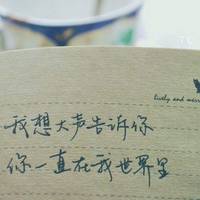 lively and
我想大声告诉你
你一直在我世界里